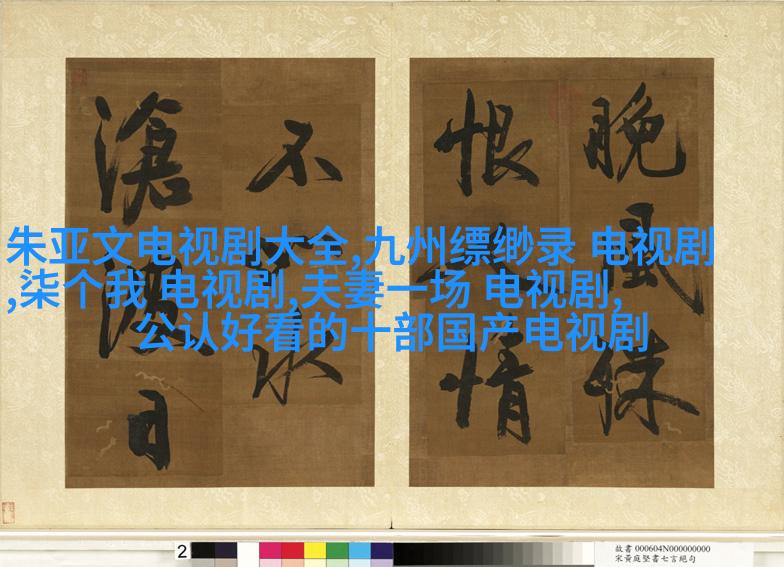 晚風
恨人情
不水
滄日
朱亚文电视剧大全,九州缥缈录 电视剧
,柒个我 电视剧,夫妻一场 电视剧,
公认好看的十部国产电视剧
2
故書 000604N000000000
宋黃庭堅書七言絕句